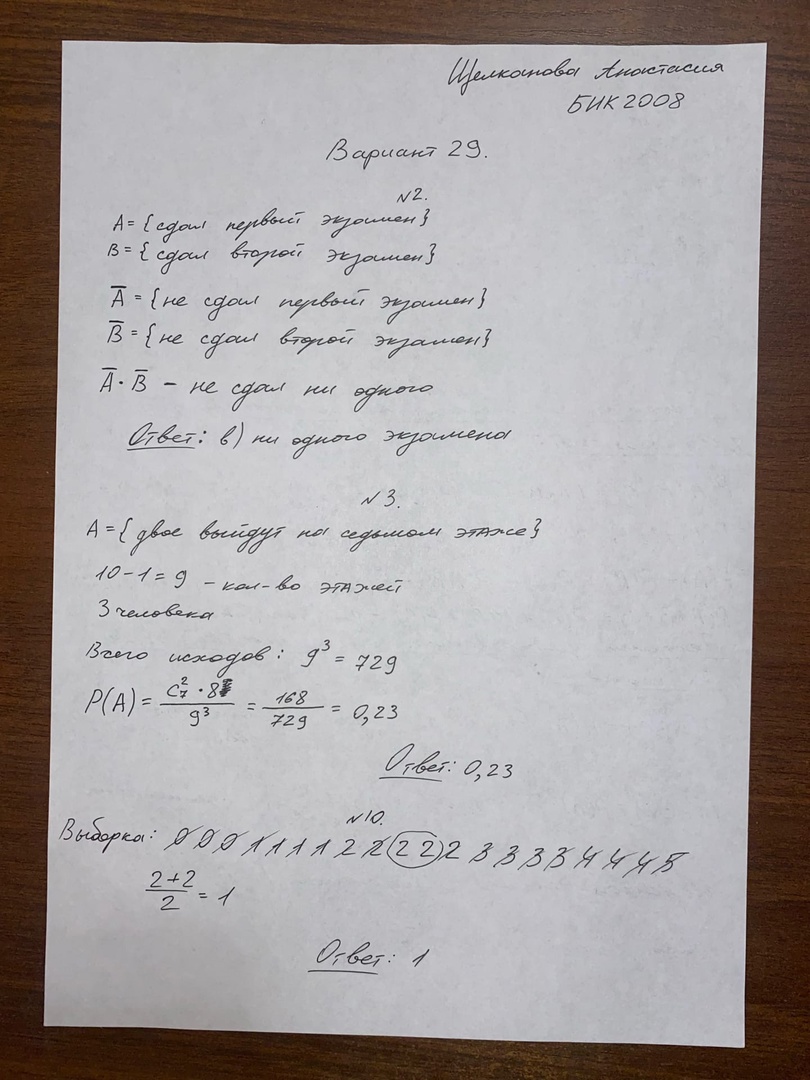 Щелканова Анастасия
БИК2008
Вариант 29.
№2.
A = {сдал первый экзамен}
B = {сдал второй экзамен}
A̅ = {не сдал первый экзамен}
B̅ = {не сдал второй экзамен}
A̅ · B̅ – не сдал ни одного
Ответ: в) ни одного экзамена
№3.
A = {двое выйдут на седьмом этаже}
10-1 = 9 – кол-во этажей
3 человека
Всего исходов: 9³ = 729
P(A) = (C₇² · 8) / 9³ = 168 / 729 = 0,23
Ответ: 0,23
№10.
Выборка: 0 0 0 1 1 1 1 2 2 2 2 2 3 3 3 3 4 4 4 5
(2+2) / 2 = 1
Ответ: 1